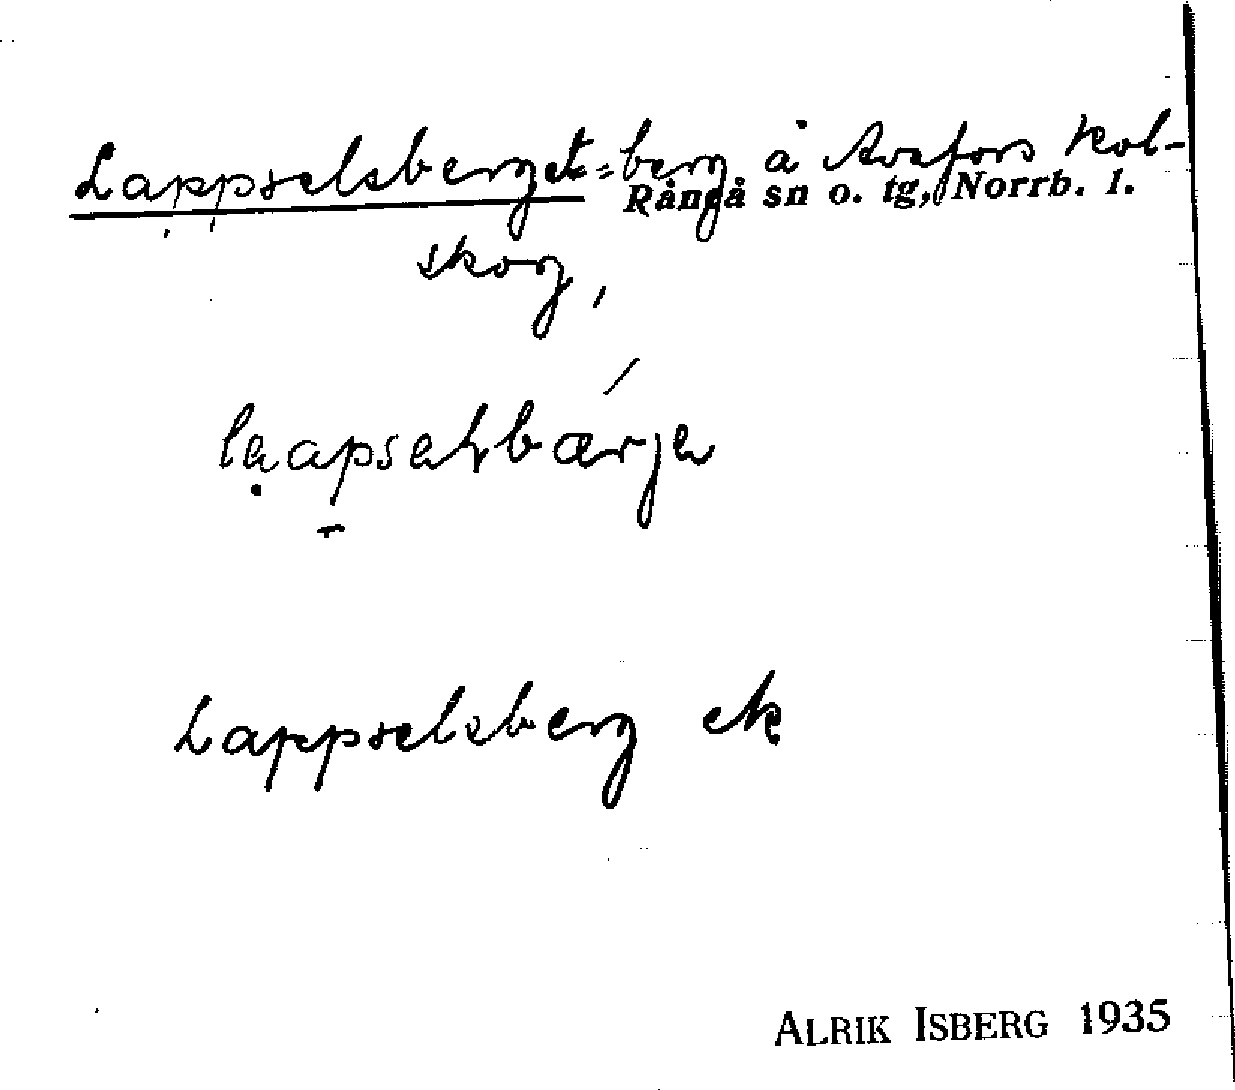 Lappselsberget = berg å Avafors kol-
Rångå sn o. tg, Norrb. l.
skog,
Lappselsberg ek
ALRIK ISBERG 1935